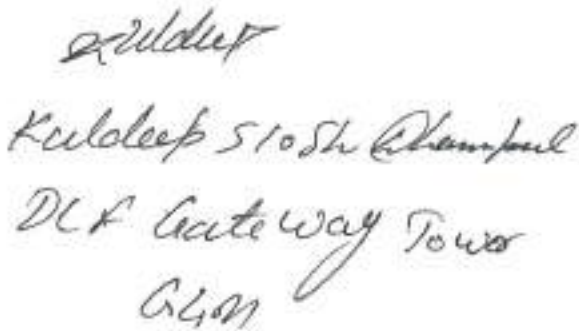 Kuldeep
Kuldeep S/o Sh
DLF Gateway Tower
GGN